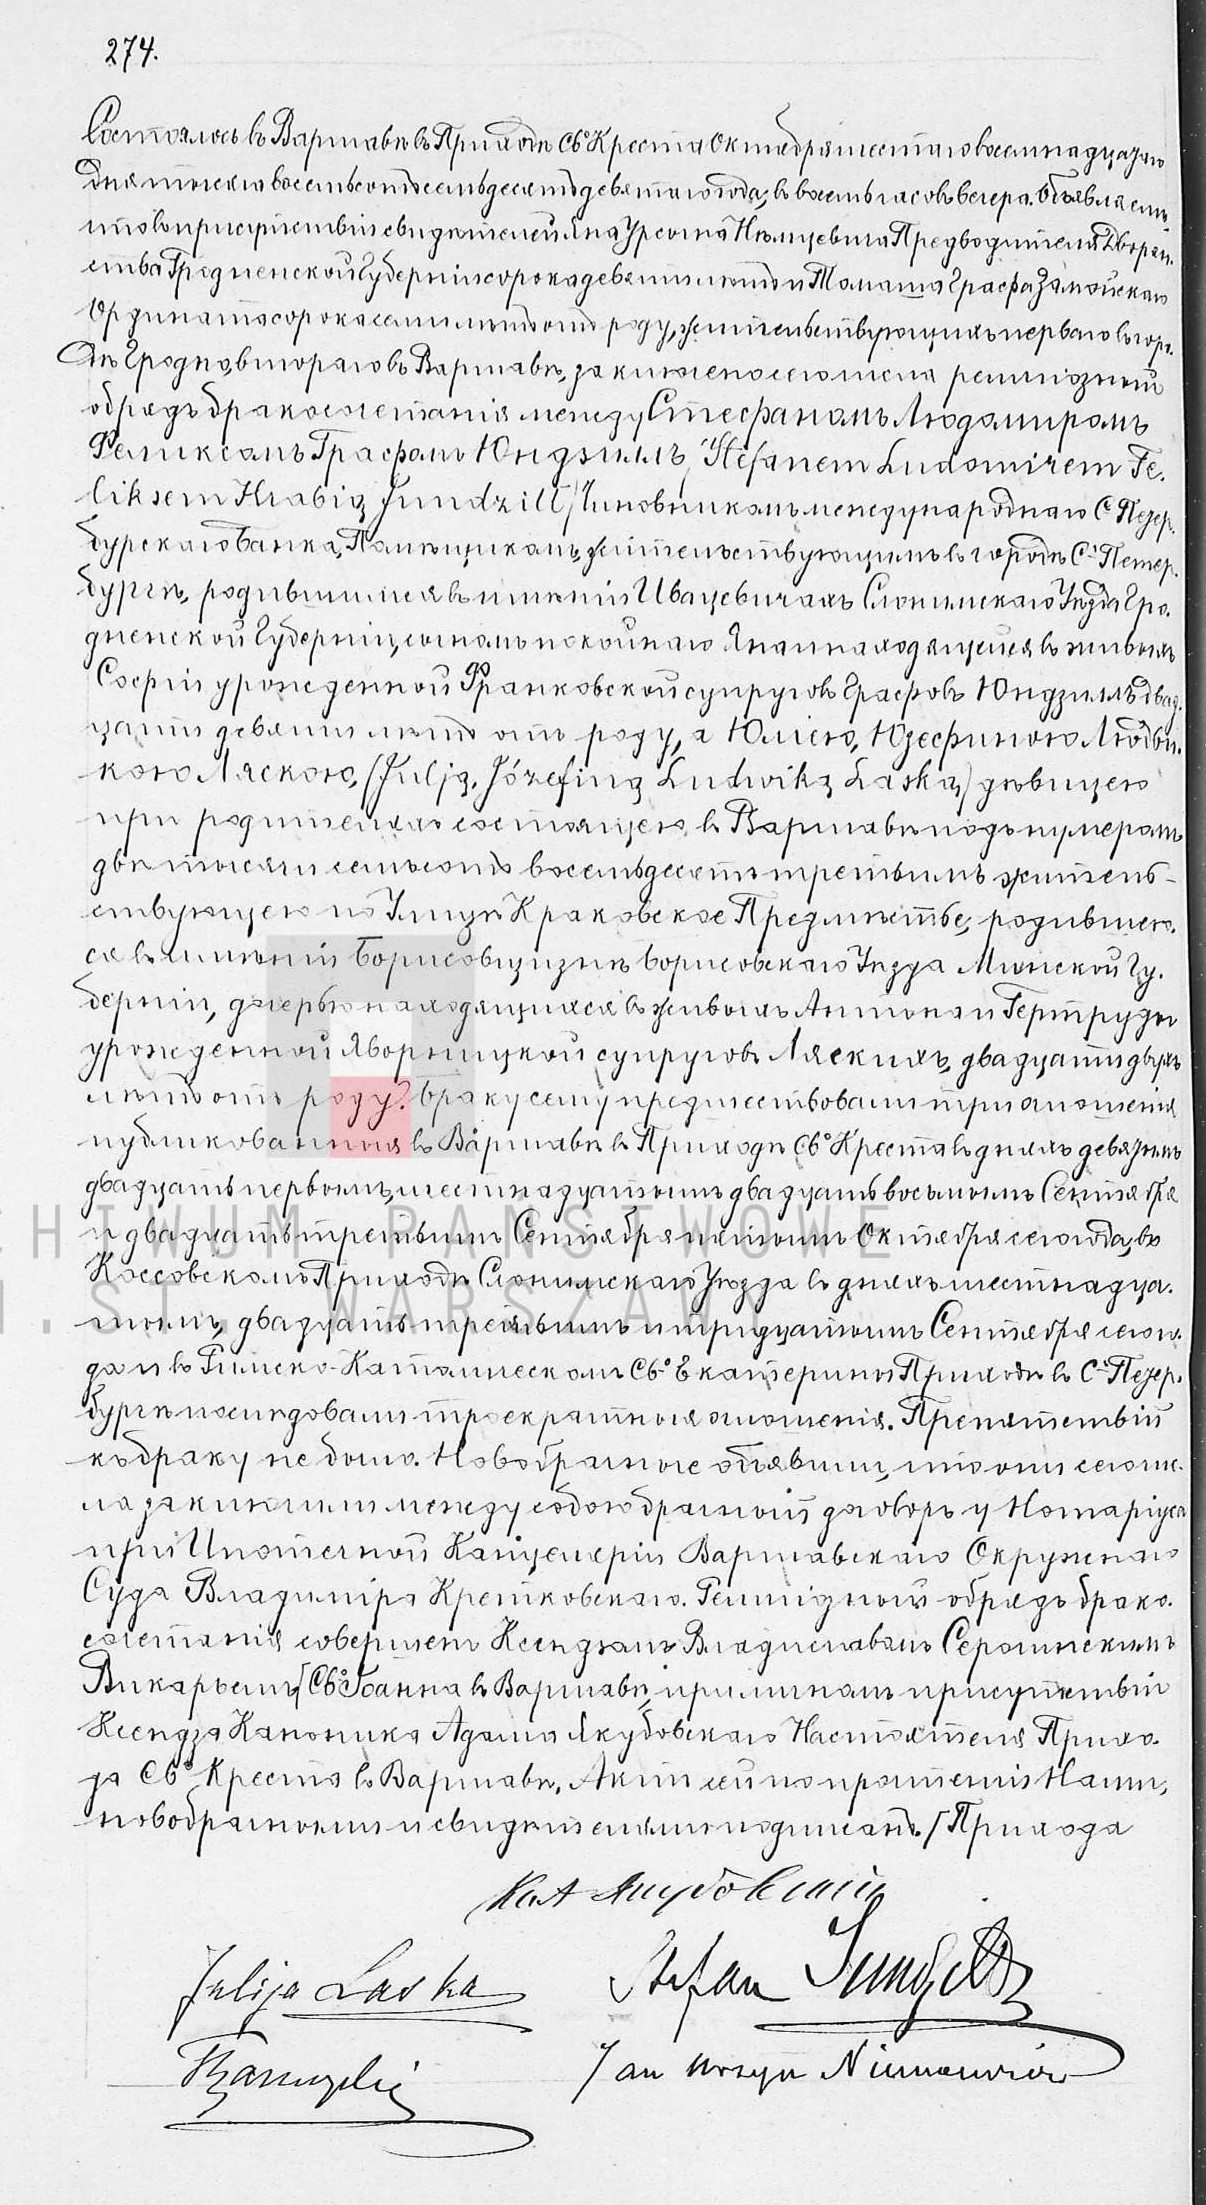 274.
Состоялось въ Варшавѣ въ Приходѣ Св. Креста Октября шестаго восемнадцатаго
дня тысяча восемьсотъ семьдесятъ девятаго года, въ восемь часовъ вечера. Объявляемъ,
что въ присутствіи свидѣтелей Яна Урсына Нѣмцевича Предводителя Дворян-
ства Гродненской Губерніи сорока девяти лѣтъ и Томаша Графа Замойскаго
Ордината сорока семи лѣтъ отъ роду, жительствующихъ перваго въ горо-
дѣ Гродно, втораго въ Варшавѣ, заключенъ сего числа религіозный
обрядъ бракосочетанія между Стефаномъ Людомиромъ
Феликсомъ Графомъ Юндзиллъ, /Stefanem Ludomirem Fe-
liksem Hrabią Jundzill/ Чиновникомъ международнаго С. Петер-
бургскаго Банка, Помѣщикомъ, жительствующимъ въ городѣ С. Петер-
бургѣ, родившимся въ имѣніи Ивацевичахъ Слонимскаго Уѣзда Гро-
дненской Губерніи, сыномъ покойнаго Яна и находящейся въ живыхъ
Софіи урожденной Франковской супруговъ Графовъ Юндзиллъ, двад-
цати девяти лѣтъ отъ роду, а Юліею, Юзефиною Людви-
кою Ляскою, /Julją, Józefiną Ludwiką Laską/ дѣвицею
при родителяхъ состоящею, въ Варшавѣ подъ нумеромъ
двѣ тысячи семьсотъ восемьдесятъ третьимъ житель-
ствующею по Улицѣ Краковское Предмѣстье, родившею-
ся въ имѣніи Борисовщизнѣ Борисовскаго Уѣзда Минской Гу-
берніи, дочерью находящихся въ живыхъ Антона и Гертруды
урожденной Яворницкой супруговъ Ляскихъ, двадцати двухъ
лѣтъ отъ роду. Браку сему предшествовали три оглашенія
публикованныя въ Варшавѣ въ Приходѣ Св. Креста въ дняхъ девятымъ
двадцать первымъ, шестнадцатымъ двадцать восьмымъ Сентября
и двадцать третьимъ Сентября пятымъ Октября сего года, въ
Коссовскомъ Приходѣ Слонимскаго Уѣзда въ дняхъ шестнадца-
тымъ, двадцать третьимъ и тридцатымъ Сентября сего го-
да и въ Римско-Католическомъ Св. Екатерины Приходѣ въ С. Петер-
бургѣ послѣдовали троекратныя оглашенія. Препятствій
къ браку не было. Новобрачные объявили, что они сего чис-
ла заключили между собою брачный договоръ у Нотаріуса
при Ипотечной Канцеляріи Варшавскаго Окружнаго
Суда Владиміра Кретковскаго. Религіозный обрядъ брако-
сочетанія совершенъ Ксендзомъ Владиславомъ Серошинскимъ
Викарьемъ /Св. Іоанна въ Варшавѣ, при личномъ присутствіи
Ксендза Каноника Адама Якубовскаго Настоятеля Прихо-
да Св. Креста въ Варшавѣ. Актъ сей по прочтеніи Нами,
новобрачными и свидѣтелями подписанъ. /Прихода
Кс. А Якубовскій
Julija Laska Stefan Jundzill
TZamoyski Jan Ursyn Niemcewicz
CHIWUM PAŃSTWOWE
M. ST. WARSZAWY